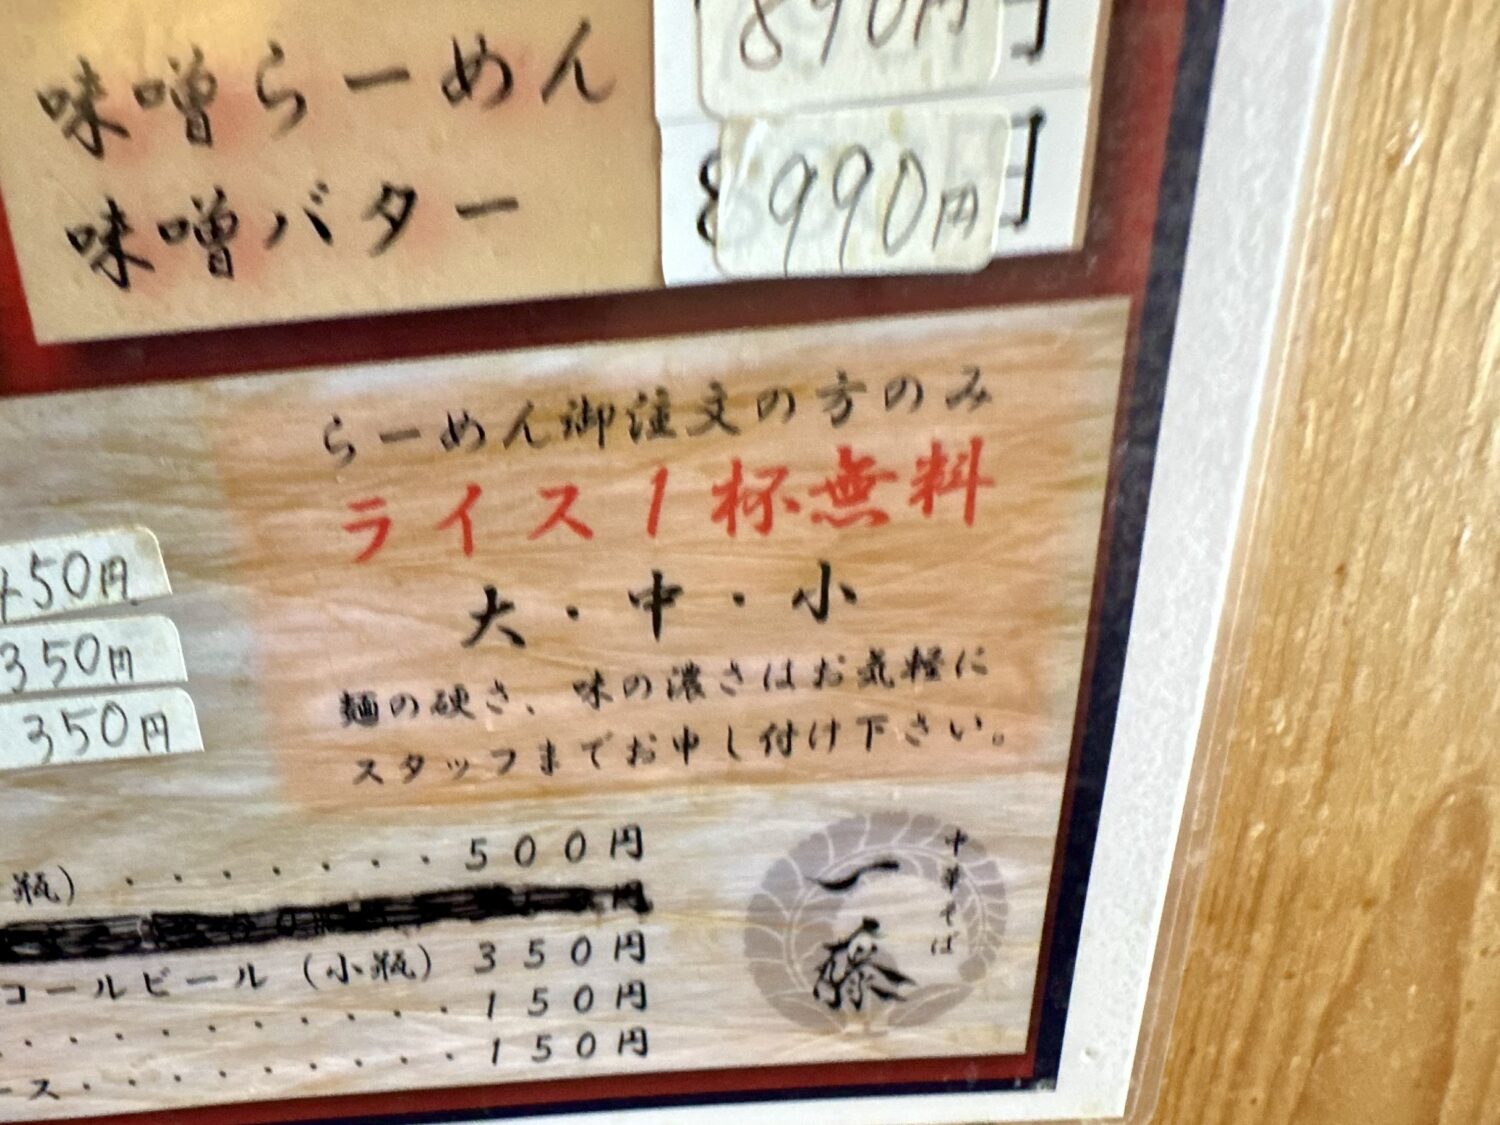 味噌らーめん 890円
味噌バター 990円
らーめん御注文の方のみ
ライス1杯無料
大・中・小
麺の硬さ、味の濃さはお気軽に
スタッフまでお申し付け下さい。
450円
350円
350円
瓶)・・・・・・・500円
円
コールビール(小瓶) 350円
・・・・・・・・・・150円
ース・・・・・・・・・150円
中華そば
一藤